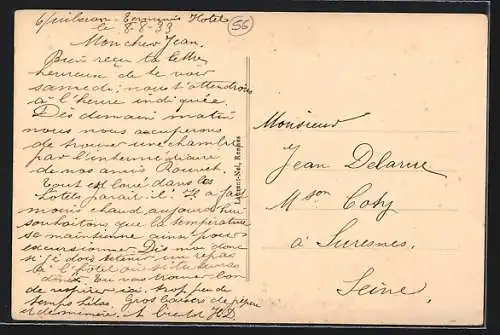 Quiberon - Terminus Hotel
le 8-8-33
56
Mon cher Jean.
Bien reçu ta lettre,
heureux de te voir
samedi; nous t'attendrons
à l'heure indiquée.
Dès demain matin
nous nous occuperons
de trouver une chambre
par l'intermédiaire
de nos amis Bouvet.
Tout est loué dans les
hotels parait-il. Il a fait
moins chaud aujourd'hui
souhaitons que la température
se maintienne ainsi pour
excursionner. Dis-moi donc
si je dois retenir un repas
à l'hôtel ou si tu auras
dîné. On va trouver bon
de respirer ici. trop peu de
temps hélas. Gros baisers de pépère
et de mémère. A bientôt JD.
Laurent-Nel, Rennes
Monsieur
Jean Delarue
Mson Coty
à Suresnes.
Seine.